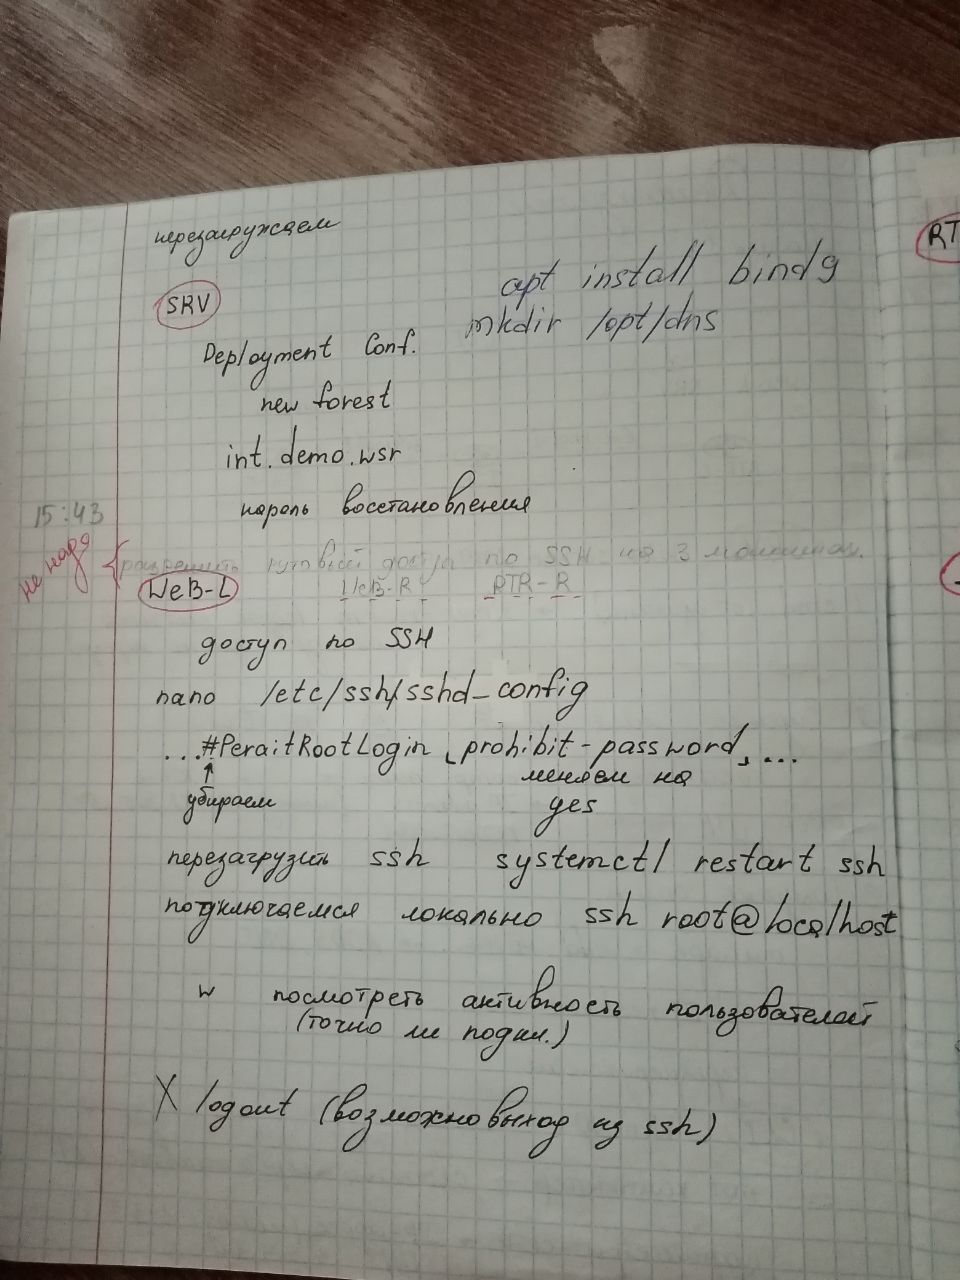 перезагружаем
apt install bind9
SRV
mkdir /opt/dns
Deployment Conf.
new forest
int.demo.wsr
пароль восстановления
15:43
не надо
{разрешить рутовый доступ по SSH на 3 машинах.
WeB-L
WeB-R
RTR-R
доступ по SSH
nano /etc/ssh/sshd_config
...#PeraitRootLogin prohibit-password, ...
↑ меняем на
убираем yes
перезагрузить ssh systemctl restart ssh
подключаемся локально ssh root@localhost
w посмотреть активность пользователей
(точно ли подкл.)
X logout (возможно выход из ssh)
RT